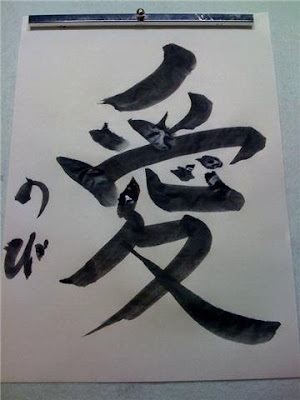 愛
のび